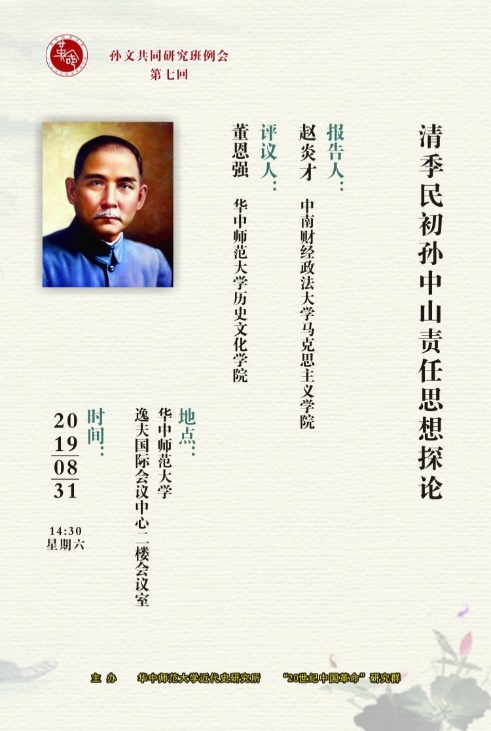 孙文共同研究班例会
第七回
清季民初孙中山责任思想探论
报告人：
赵炎才 中南财经政法大学马克思主义学院
评议人：
董恩强 华中师范大学历史文化学院
地点：
华中师范大学
逸夫国际会议中心二楼会议室
时间：
20
19
08
31
14:30
星期六
主办 华中师范大学近代史研究所 “20世纪中国革命”研究群